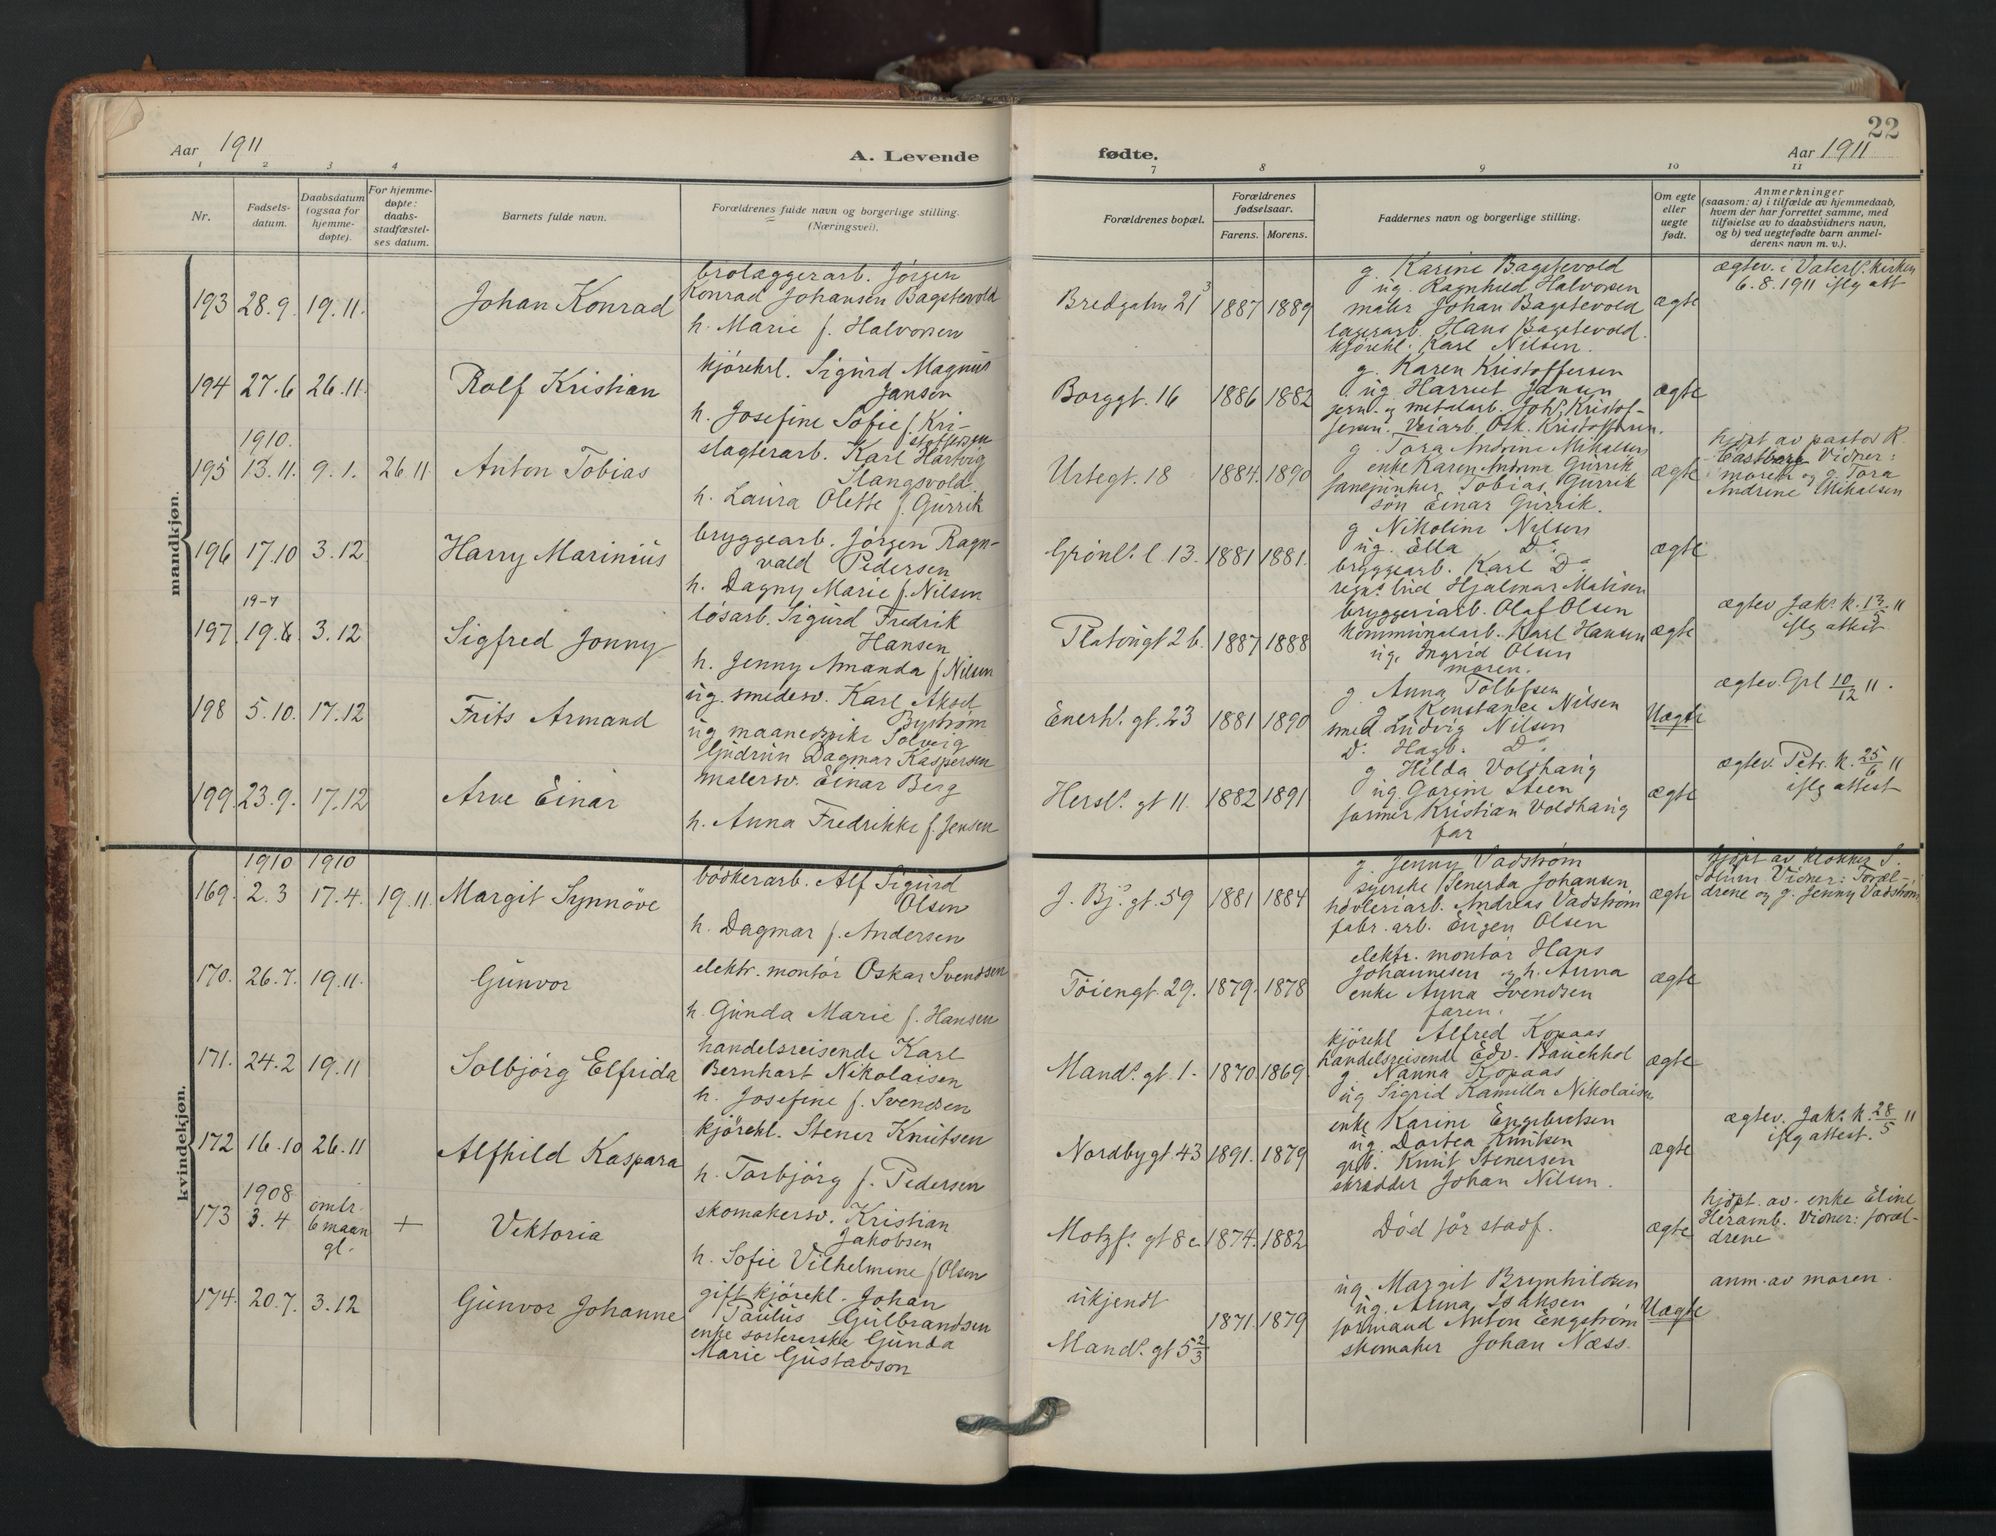 22
Aar 1911
A. Levende
fødte.
Aar 1911
1 2 3 4
7 8 9 10 11
Nr.
Fødsels-
datum.
Daabsdatum
(ogsaa for
hjemme-
døpte).
For hjemme-
døpte:
daabs-
stadfæstel-
ses datum.
Barnets fulde navn.
Forældrenes fulde navn og borgerlige stilling.
(Næringsvei).
Forældrenes bopæl.
Forældrenes
fødselsaar.
Farens. Morens.
Faddernes navn og borgerlige stilling.
Om egte
eller
uegte
født.
Anmerkninger
(saasom: a) i tilfælde av hjemmedaab,
hvem der har forrettet samme, med
tilføielse av to daabsvidners navn,
og b) ved uegtefødte barn anmel-
derens navn m. v.).
mandkjøn.
193 28.9. 19.11. Johan Konrad
brolæggerarb. Jørgen
Konrad Johansen Bagstevold
h. Marie f. Halvorsen
Bredgaten 21³ 1887 1889
g. Karine Bagstevold
ug. Ragnhild Halvorsen
maler Johan Bagstevold
lagerarb. Hans Bagstevold.
kjørekl. Karl Nilsen.
ægte
ægtev. i Vaterl. kirken
6.8.1911 iflg att
194 27.6 26.11. Rolf Kristian
kjørekrl. Sigurd Magnus
Jansen
h. Josefine Sofie f. Kri-
stoffersen
Borggt. 16 1886 1882
g. Karen Kristoffersen
ug. Harriet Jansen
jern- og metalarb. Joh. Kristof-
fersen. Veiarb. Osk. Kristoffersen.
ægte
1910.
195 13.11. 9.1. 26.11. Anton Tobias
slagterarb. Karl Hartvig
Slangsvold
h. Laura Olette f. Gurrik
Urtegt. 18 1884. 1890
g. Tora Andrine Mikalsen
enke Karen Andrina Gurrik
fanejunker Tobias Gurrik
søn Einar Gurrik.
ægte
hjdpt av pastor R.
Castberg Vidner:
moren og g. Tora
Andrene Mikalsen
196 17.10 3.12 Harry Marinius
bryggearb. Jørgen Ragn-
vald Pedersen
h. Dagny Marie f. Nilsen
Grønl. l. 13. 1881 1881.
g. Nikoline Nilsen
ug. Ella Do
bryggearb. Karl Do
Hjalmar Matisen
ægte
19-7
197 19.6 3.12 Sigfred Jonny
løsarb. Sigurd Fredrik
Hansen
h. Jenny Amanda f. Nilsen
Platougt 2 b. 1887 1888
bryggeriarb. Olaf Olsen
kommunalarb. Karl Hansen
ug. Ingrid Olsen
moren.
ægte
ægtev Jak. k. 13/5 11
iflg attest.
198 5.10. 17.12 Frits Armand
ug. smedesv. Karl Aksel
Byström
ug maanedspike Solveig
Gudrun Dagmar Kaspersen
Enerh. gt. 23 1881 1890
g. Anna Tollefsen
g Konstance Nilsen
smed Ludvig Nilsen
Do Hagb. Do
Uægte
ægtev. Grl 10/12 11.
199. 23.9. 17.12 Arve Einar
malersv. Einar Berg
h. Anna Fredrikke f. Jensen
Hersl. gt 11. 1882 1891
g Hilda Voldhaug
ug Gorine Steen
former Kristian Voldhaug
far
ægte
ægtev. Petr. k. 25/6 11
iflg attest
kvindekjøn.
1910 1910
169. 2.3 17.4. 19.11. Margit Synnöve
bödkerarb. Alf Sigurd
Olsen
h. Dagmar f. Andersen
J. Bj. gt. 59 1881 1884
g. Jenny Vadstrøm
syerske Senerda Johansen
høvleriarb. Andreas Vadstrøm
fabr. arb. Eugen Olsen
ægte
hjdpt av klokker S.
Solum. Vidner: Foræl-
drene og g. Jenny Vadstrøm
170. 26.7. 19.11. Gunvor
elektr. montør Oskar Svendsen
h. Gunda Marie f. Hansen
Töiengt. 29. 1879. 1878
elektr. montør Hans
Johannesen og h. Anna
enke Anna Svendsen
faren.
ægte
171. 24.2 19.11 Solbjörg Elfrida
handelsreisende Karl
Bernhart Nikolaisen
h. Josefine f. Svendsen
Mand. gt. 1. 1870 1869.
kjörekl Alfred Kopaas
handelsreisende Edv. Bauchhol
g Nanna Kopaas
ug Sigrid Kamilla Nikolaisen
ægte
172 16.10 26.11 Alfhild Kaspara
kjörekl. Stener Knutsen
h. Torbjörg f. Pedersen
Nordbygt 43 1891. 1879
enke Karine Engebretsen
ug. Dortea Knutsen
grb. Knut Stenersen
skrædder Johan Nilsen.
ægte
ægtev. Jak. k. 28/5 11
iflg attest.
1908
173 3.4 omtr.
6 maan
gl. + Viktoria
skomakersv. Kristian
Jakobsen
h. Sofie Vilhelmine f. Olsen
Motzf. gt 8 c. 1874. 1882
Död før stadf.
ægte
hjdpt. av. enke Eline
Heramb. Vidner: foræl-
drene
174. 20.7. 3.12 Gunvor Johanne
gift kjörekl. Johan
Paulus Gulbrandsen
enke sortererske Gunda
Marie Gustavson
ukjendt
Mand. gt 5 2/3 1871. 1879
ug. Margit Brynhildsen
ug. Anna Isaksen
formand Anton Engstrøm
skomaker Johan Næss.
Uægte
anm. av moren.